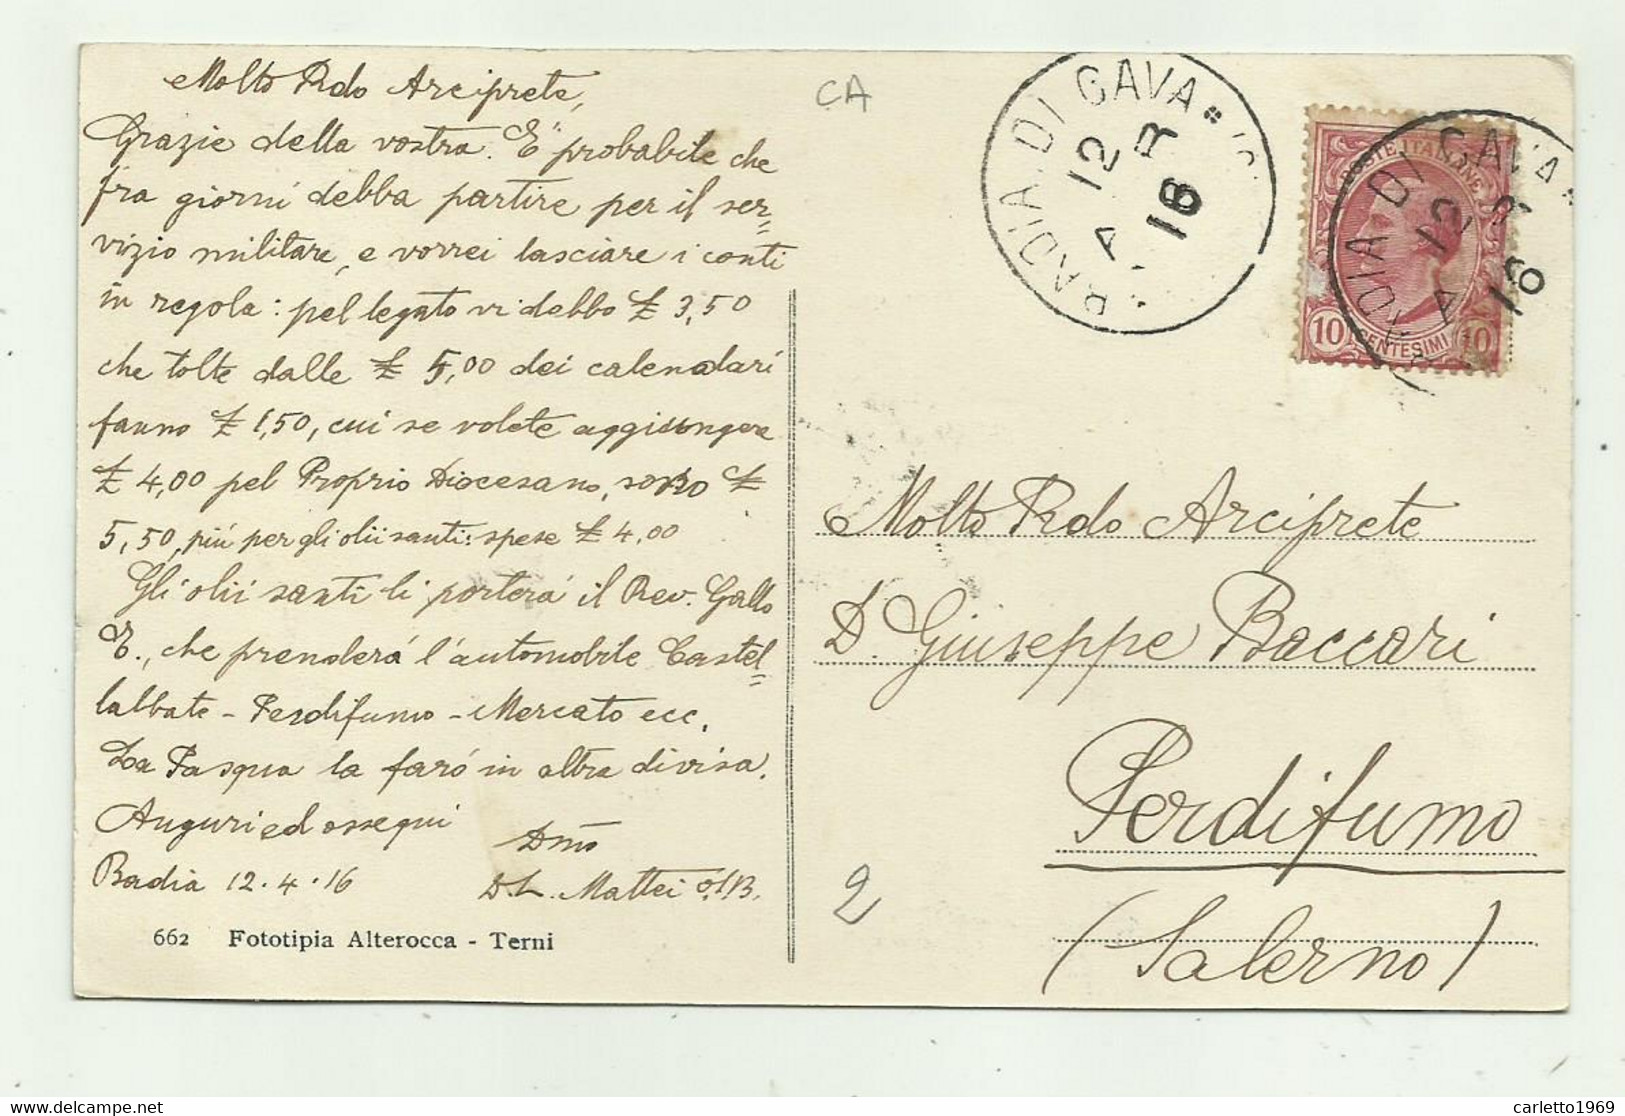 Molto Rdo Arciprete,
Grazie della vostra. E' probabile che
fra giorni debba partire per il ser=
vizio militare, e vorrei lasciare i conti
in regola: pel legato vi debbo £ 3,50
che tolte dalle £ 5,00 dei calendari
fanno £ 1,50, cui se volete aggiungere
£ 4,00 pel Proprio Diocesano, sono £
5,50, più per gli olii santi: spese £ 4.00
Gli olii santi li porterà il Rev. Gallo
E., che prenderà l'automobile Castel=
labbate - Perdifumo - Mercato ecc.
La Pasqua la farò in altra divisa.
Auguri ed ossequi
Dmo
Badia 12.4.16
D. L. Mattei O.S.B.
662 Fototipia Alterocca - Terni
CA
BADIA DI CAVA
12
A R
16
POSTE ITALIANE
10 CENTESIMI 10
BADIA DI CAVA
12
A R
16
Molto Rdo Arciprete
D. Giuseppe Baccari
Perdifumo
(Salerno)
2
carletto1969